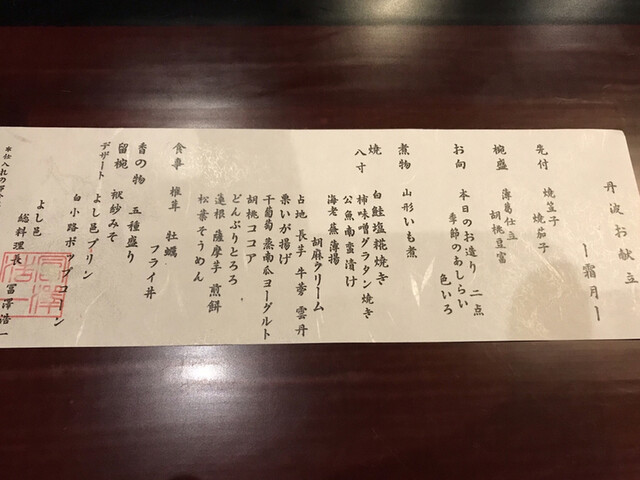 丹波お献立
ー霜月ー
先付 焼笠子
焼茄子
椀盛 薄葛仕立
胡桃豆富
お向 本日のお造り 二点
季節のあしらい
色いろ
煮物 山形いも煮
焼八寸 白鮭塩糀焼き
柿味噌グラタン焼き
公魚南蛮漬け
海老蓑薄揚
胡麻クリーム
占地 長芋 牛蒡 雲丹
栗いが揚げ
干葡萄 蒸南瓜ヨーグルト
胡桃ココア
どんぶりとろろ
蓮根 薩摩芋 煎餅
松葉そうめん
食事 椎茸 牡蠣
フライ丼
香の物 五種盛り
留椀 袱紗みそ
デザート よし邑プリン
白小路ポップコーン
よし邑
総料理長 冨澤浩一